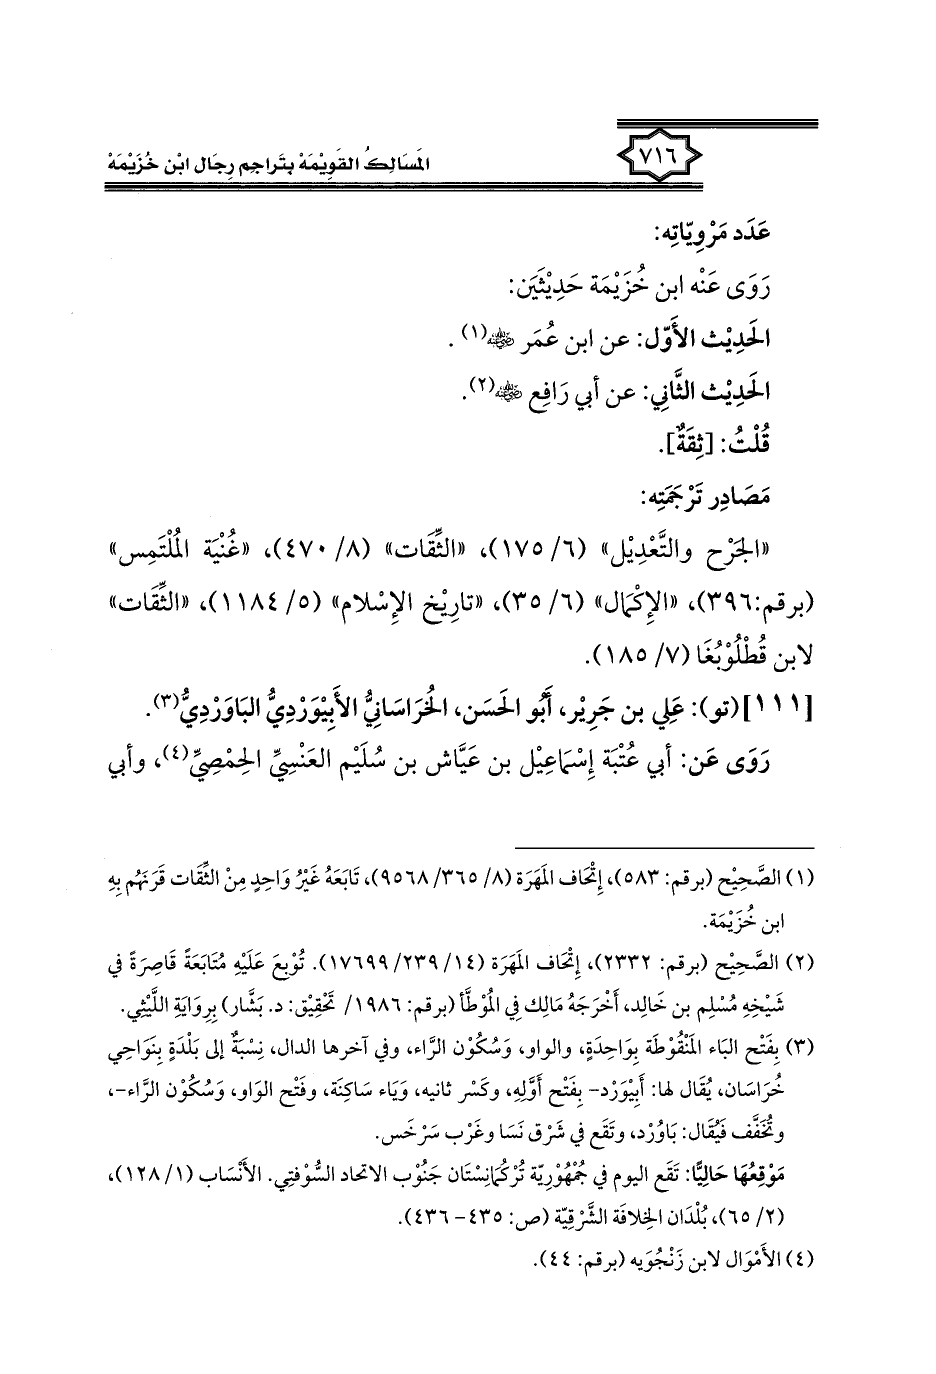 ٧١٦
المَسَالِكُ القَوِيْمَةْ بتَراجم رِجَال ابْن خُزَيْمَةْ
عَدَد مَرْوِيّاتِه:
رَوَى عَنْه ابن خُزَيْمَة حَدِيْثَيَن:
الحَدِيْث الأَوّل: عن ابن عُمَر ﵁(١) .
الحَدِيْث الثَّانِي: عن أبي رَافِع ﵁(٢).
قُلْتُ: [ثِقَةٌ].
مَصَادِر تَرْجَمَتِه:
«الجَرْح والتَّعْدِيْل» (٦/ ١٧٥)، «الثِّقَات» (٨/ ٤٧٠)، «غُنْيَة المُلْتَمِس»
(برقم:٣٩٦)، «الإِكْمَال» (٦/ ٣٥)، «تارِيْخ الإِسْلام» (٥/ ١١٨٤)، «الثِّقَات»
لابن قُطْلُوْبُغَا (٧/ ١٨٥).
[١١١](تو): عَلِي بن جَرِيْر، أَبُو الحَسَن، الخُرَاسَانِيُّ الأَبِيْوَرْدِيُّ البَاوَرْدِيُّ(٣).
رَوَى عَن: أبي عُتْبَة إِسْمَاعِيْل بن عَيَّاش بن سُلَيْم العَنْسِيِّ الحِمْصِيِّ(٤)، وأبي
(١) الصَّحِيْح (برقم: ٥٨٣)، إِتْحَاف المَهَرَة (٨/ ٣٦٥/ ٩٥٦٨)، تَابَعَهُ غَيْرُ وَاحِدٍ مِنْ الثِّقَات قَرَنَهُم بِهِ
ابن خُزَيْمَة.
(٢) الصَّحِيْح (برقم: ٢٣٣٢)، إِتْحَاف المَهَرَة (١٤/ ٢٣٩/ ١٧٦٩٩). تُوْبِعَ عَلَيْهِ مُتَابَعَةً قَاصِرَةً في
شَيْخِهِ مُسْلِم بن خَالِد، أَخْرَجَهُ مَالِك فِي المُوْطَّأ (برقم: ١٩٨٦/ تَحْقِيْق: د. بَشَّار) بِرِوَايَةِ اللَّيْثِي.
(٣) بِفَتْح البَاء المَنْقُوْطَة بِوَاحِدَةٍ، والواو، وَسُكُوْن الرَّاء، وفي آخرها الدال، نِسْبَةٌ إلى بَلْدَةٍ بِنَوَاحِي
خُرَاسَان، يُقَال لها: أَبِيْوَرْد- بِفَتْح أَوَّلِهِ، وكَسْر ثانيه، وَيَاء سَاكِنَة، وفَتْح الوَاو، وَسُكُوْن الرَّاء-،
وتُخَفَّف فَيُقَال: بَاوُرْد، وتَقَع في شَرْق نَسَا وغَرْب سَرْخَس.
مَوْقِعُهَا حَالِيًّا: تَقَع اليوم في جُمْهُوْرِيّة تُرْكُمَانِسْتَان جَنُوْب الاتحاد السُّوْفتِي. الأَنْسَاب (١/ ١٢٨)،
(٢/ ٦٥)، بُلْدَان الخِلافَة الشَّرْقِيّة (ص: ٤٣٥- ٤٣٦).
(٤) الأَمْوَال لابن زَنْجُوَيه (برقم: ٤٤).